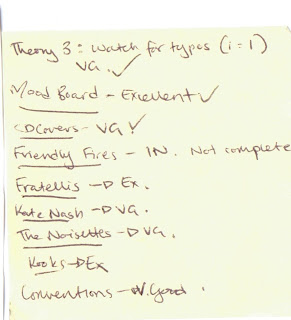 Theory 3: Watch for types (i = 1)
VG. ✓
Mood Board - Excellent ✓
CDCovers - VG ✓
Friendly Fires - IN. Not complete
Fratellis → Ex.
Kate Nash → VG.
The Noisettes → VG.
Kooks → Ex
Conventions - V.Good.